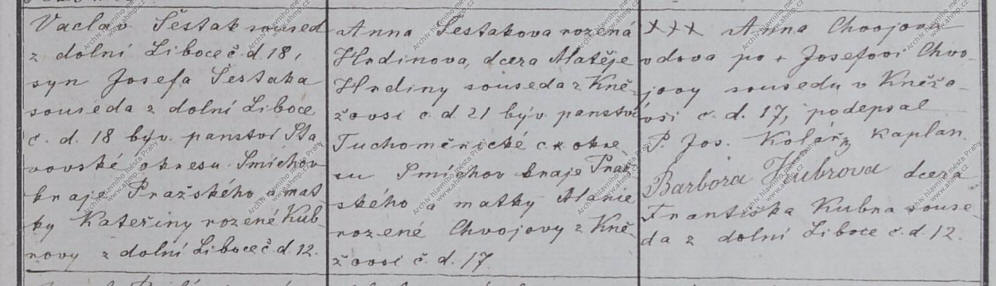 Vaclav Šestak soused
z dolní Liboce č. d. 18,
syn Josefa Šestaka
souseda z dolní Liboce
č. d. 18 býv. panství Sta
novské okresu Smíchov
kraje Pražského a mat
ky Kateřiny rozené Kub
rovy z dolní Liboce č. d. 12.
Anna Šestakova rozená
Hrdinova, dcera Matěje
Hrdiny souseda z Kně
žovsi č. d. 21 býv. panství
Tuchoměřické okre
su Smichov kraje Praž
ského a matky Marie
rozené Chvojovy z Kně
žovsi č. d. 17.
XXX Anna Chvojova
vdova po + Josefovi Chvo
jovy sousedu v Kněžo
vsi č. d. 17, podepsal
P. Jos. Kolářz Kaplan
Barbora Kubrova dcera
Františka Kubra souse
da z dolní Liboce č. d. 12.